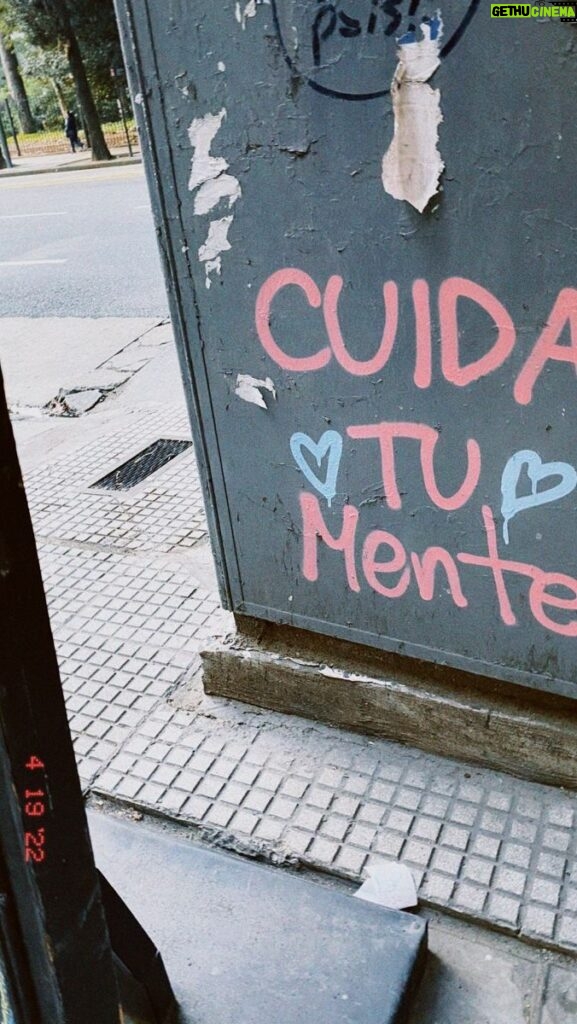 GETHUCINEMA
pais!
CUIDA
TU
Mente
4 19 '22